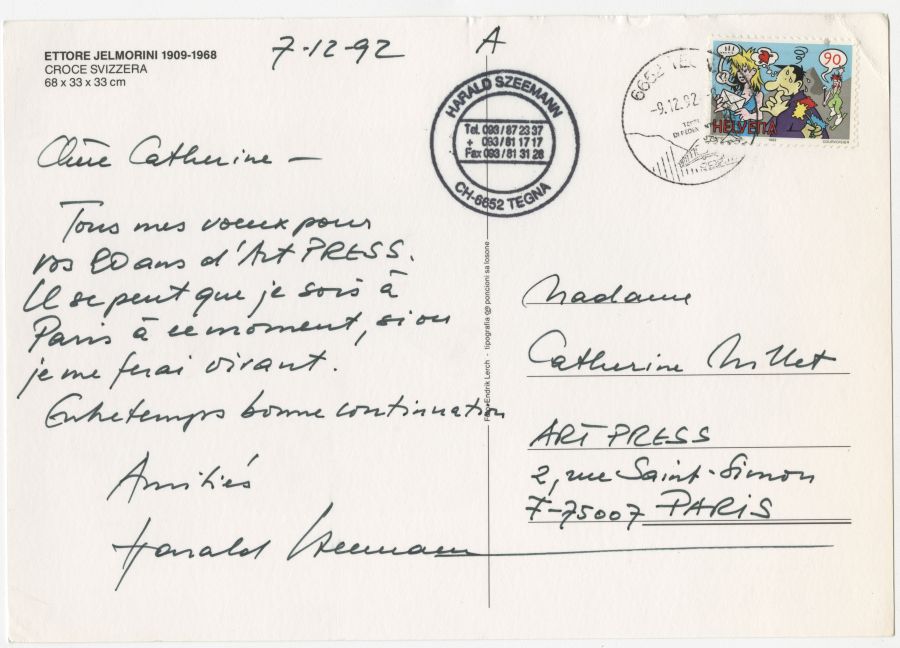 ETTORE JELMORINI 1909-1968
CROCE SVIZZERA
68 x 33 x 33 cm
7-12-92
A
HARALD SZEEMANN
Tel. 093/87 23 37
+ 093/81 17 17
Fax 093/81 31 28
CH-6652 TEGNA
6652 TEGNA
-9.12.92
90
HELVETIA
Chère Catherine –
Tous mes voeux pour
vos 20 ans d'Art PRESS.
Il se peut que je sois à
Paris à ce moment, si oui
je me ferai vivant.
Entretemps bonne continuation
Amitiés
Harald Szeemann
Foto Endrik Lerch - tipografia poncioni sa losone
Madame
Catherine Millet
ART PRESS
2, rue Saint-Simon
F-75007 PARIS